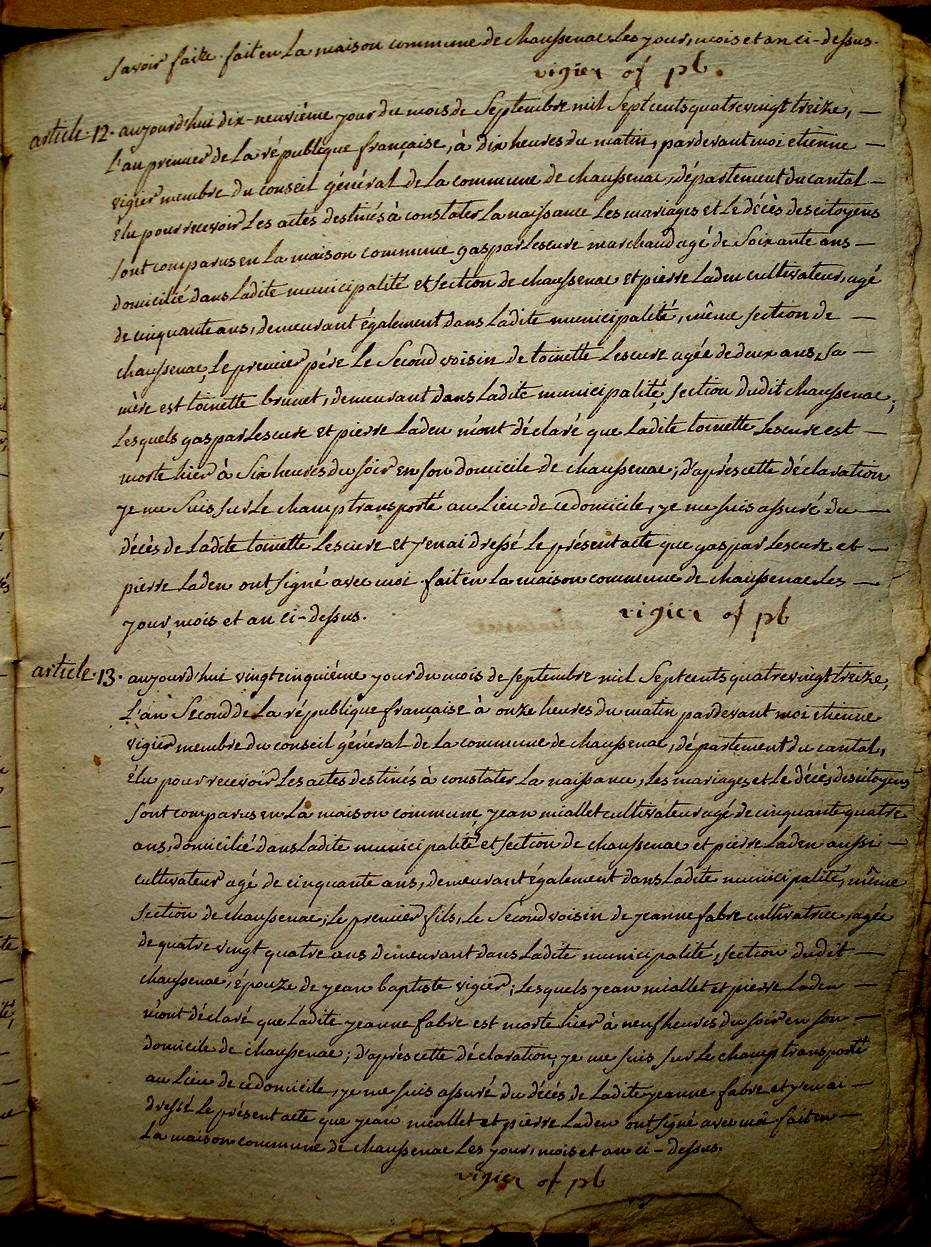 savoir faite. fait en la maison commune de chaussenac les jour, mois et an ci-dessus.
vigier of pb.
article 12. aujourd'hui dix-neuviéme jour du mois de septembre mil sept cents quatre vingt treize, —
l'an premier de la république française, à dix heures du matin, pardevant moi etienne —
vigier membre du conseil général de la commune de chaussenac, département du cantal —
élu pour recevoir les actes destinés à constater la naissance les mariages et le décès des citoyens
sont comparus en la maison commune gaspar lescure marchand agé de soixante ans —
domicilié dans ladite municipalité et section de chaussenac et pierre laden cultivateur, agé
de cinquante ans, demeurant également dans ladite municipalité, même section de —
chaussenac, le premier pére le second voisin de toinette lescure agée de deux ans, sa —
mère est toinette brunet, demeurant dans ladite municipalité, section dudit chaussenac;
lesquels gaspar lescure et pierre laden m'ont déclaré que ladite toinette lescure est —
morte hier à six heures du soir en son domicile de chaussenac; d'après cette déclaration
je me suis sur le champ transporté au lieu de ce domicile, je me suis assuré du —
décès de ladite toinette lescure et j'en ai dressé le présent acte que gaspar lescure et —
pierre laden ont signé avec moi. fait en la maison commune de chaussenac les —
jour, mois et an ci-dessus.
vigier of pb
article 13. aujourd'hui vingt cinquiéme jour du mois de septembre mil sept cents quatre vingt treize,
l'an second de la république française à onze heures du matin pardevant moi etienne
vigier membre du conseil général de la commune de chaussenac, département du cantal,
élu pour recevoir les actes destinés à constater la naissance, les mariages et le décès des citoyens
sont comparus en la maison commune, jean miallet cultivateur agé de cinquante quatre
ans, domicilié dans ladite municipalité et section de chaussenac et pierre laden aussi —
cultivateur agé de cinquante ans, demeurant également dans ladite municipalité, même
section de chaussenac; le premier fils, le second voisin de jeanne fabre cultivatrice, agée
de quatre vingt quatre ans demeurant dans ladite municipalité, section dudit —
chaussenac, épouze de jean baptiste vigier; lesquels jean miallet et pierre laden —
m'ont déclaré que ladite jeanne fabre est morte hier à neuf heures du soir en son —
domicile de chaussenac; d'après cette déclaration, je me suis sur le champ transporté
au lieu de ce domicile, je me suis assuré du décès de ladite jeanne fabre et j'en ai —
dressé le présent acte que jean miallet et pierre laden ont signé avec moi fait en —
la maison commune de chaussenac les jour, mois et an ci-dessus.
vigier of pb